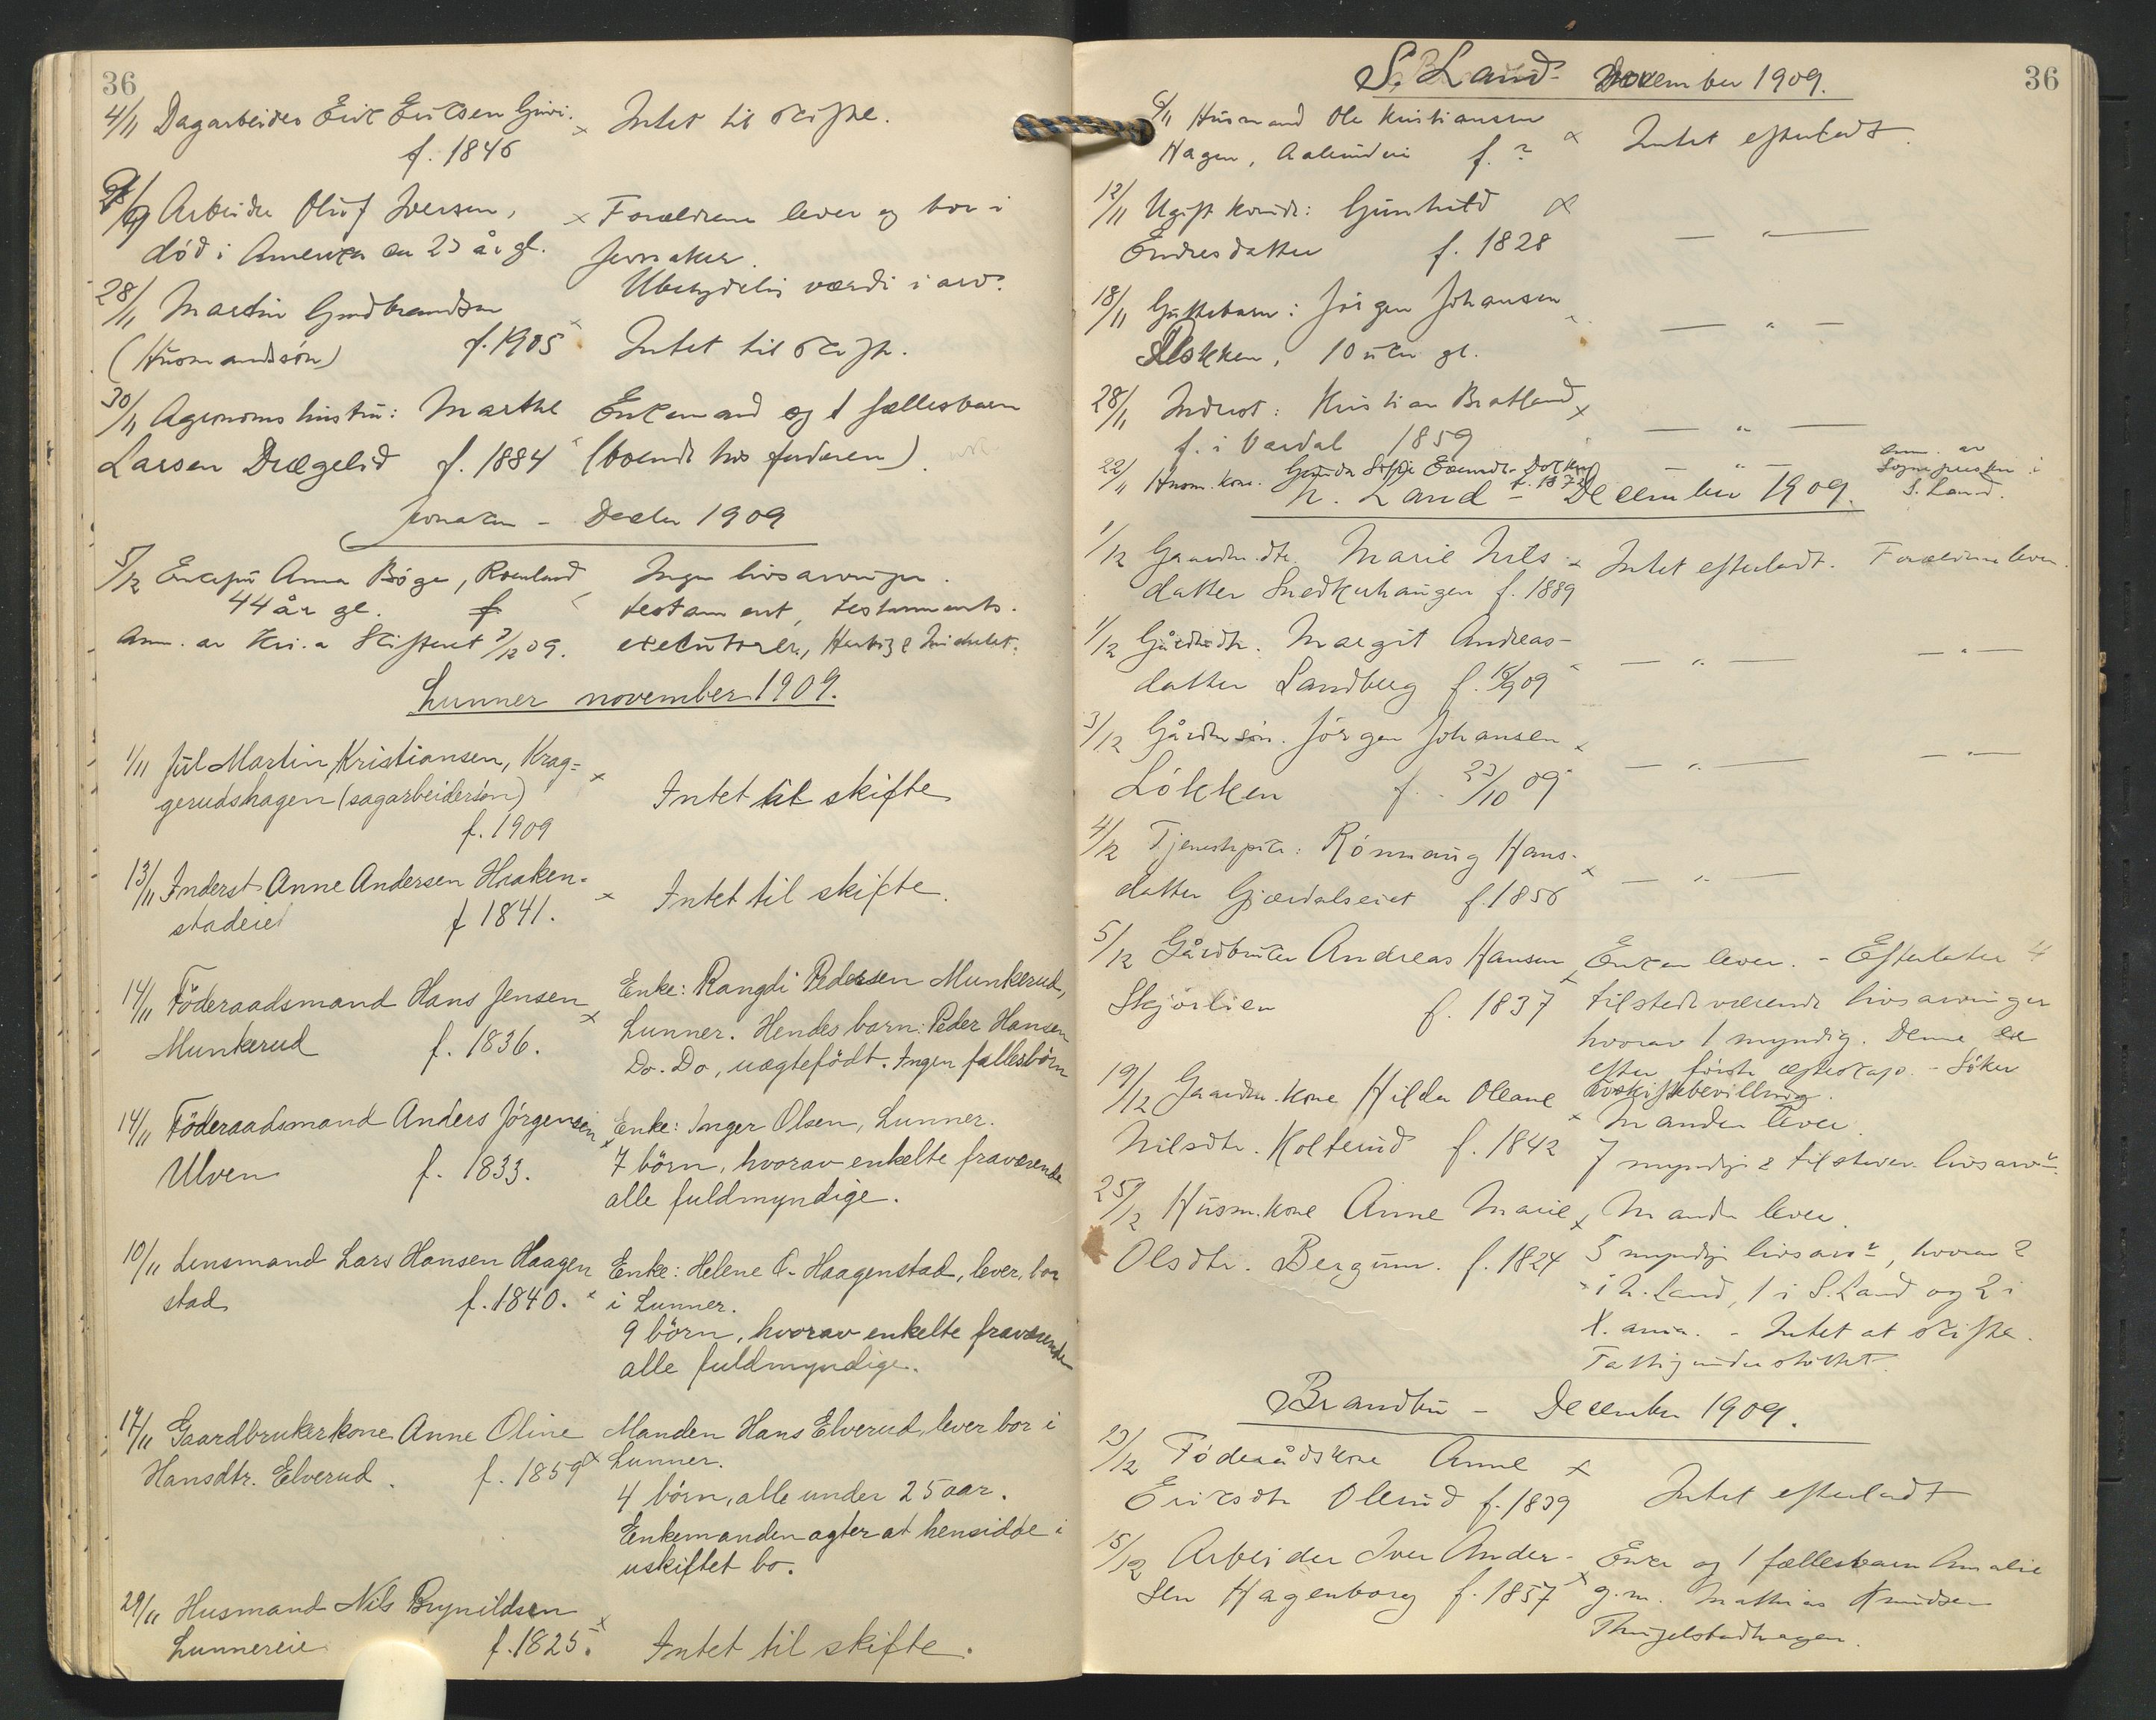 36
4/11 Dagarbeider Eric Ericsen Grini. x Intet til skifte.
f. 1846
Arbeider Oluf Iversen, x Forældrene lever og bor i
död i America ca 23 år gl. Jevnaker.
Ubetydelig værdi i arv.
28/11 Martin Gudbrandsen
(Husmandssön) f. 1905 Intet til skifte.
30/11 Agronoms hustru: Marthe Enkemand og 1 fællesbarn
Larsen Drægelid f. 1884 (boende hos faderen).
Jevnaker - Decbr 1909
5/12 Enkefru Anna Böge, Roenlund Ingen livsarvinger.
44 år gl. testament, testaments-
Anm. av Kr.a Skifteret 7/12 09. executorer,
Lunner november 1909.
1/11 Jul Martin Kristiansen, Krag= x
gerudshagen (sagarbeidersön) Intet til skifte
f. 1909
13/11 Inderst Anne Andersen Haaken- x Intet til skifte.
stadeiet f 1841.
14/11 Föderaadsmand Hans Jensen x Enke: Rangdi Pedersen Munkerud,
Munkerud f. 1836. Lunner. Hendes barn: Peder Hansen
Do. Do, uægtefödt. Ingen fællesbörn
14/11 Föderaadsmand Anders Jörgensen x Enke: Inger Olsen, Lunner.
Ulven f. 1833. 7 börn, hvorav enkelte fraværende
alle fuldmyndige.
10/11 Lensmand Lars Hansen Haagen Enke: Helene O. Haagenstad, lever, bor
stad f. 1840. x i Lunner.
9 börn, hvorav enkelte fraværende
alle fuldmyndige.
17/11 Gaardbrukerkone Anne Oline Manden Hans Elverud, lever bor i
Hansdtr. Elverud. f. 1859 x Lunner.
4 börn, alle under 25 aar.
Enkemanden agter at hensidde i
uskiftet bo.
29/11 Husmand Nils Brynildsen x
Lunnereie f. 1825. Intet til skifte.
36
S. Land - November 1909.
6/11 Husmand Ole Kristiansen
Hagen, f. ? x Intet efterladt.
12/11 Ugift kvinde: Gunhild x
Endresdatter f. 1828 — " —
18/11 Guttebarn: Jörgen Johansen
Lökken, 10 uker gl. — " —
28/11 Inderst: Kristian Bratland x
f. i Vardal 1859 — " —
22/11 Husm. kone. — " — anm. av
f. 187 Sognepresten i
S. Land.
N. Land - December 1909.
1/12 Gaardm. dtr. Marie Nils- x Intet efterladt. Forældrene lever.
datter Snedkerhaugen f. 1889
1/12 Gårdmdtr. Margit Andreas-
datter Landberg f. 18/9 09 — " — — " —
3/12 Gårdmsön. Jörgen Johansen x
Lökken f. 23/10 09 — " — — " —
4/12 Tjenestepike: Rönnaug Hans- x
datter Gjærdalseiet f 1856 — " —
5/12 Gårdbruker Andreas Hansen Enken lever. - Efterlater 4
Skjörlien f. 1837 x tilstedeværende livsarvinger
hvorav 1 myndig. Denne er
efter förste ægteskap. - Söker
uskiftebevilling.
19/12 Gaardm. kone Hilda Oleane x Manden lever.
Nilsdtr. Kolterud f. 1842 7 myndige & tilstedev. livsarv.
25/12 Husm.kone Anne Marie x Manden lever.
Olsdtr. Bergum. f. 1824 5 myndige livsarv., hvorav 2
i N. Land, 1 i S. Land og 2 i
X.ania. - Intet at skifte.
Fattigunderstöttet.
Brandbu - December 1909.
23/12 Föderådskone Anne x
Ericsdtr Olerud f. 1839 Intet efterladt
15/12 Arbeider Iver Ander- x Enke og 1 fællesbarn Amalie
sen Hagenborg f. 1857 g.m. Mathias Knudsen
Thingelstadhagen.